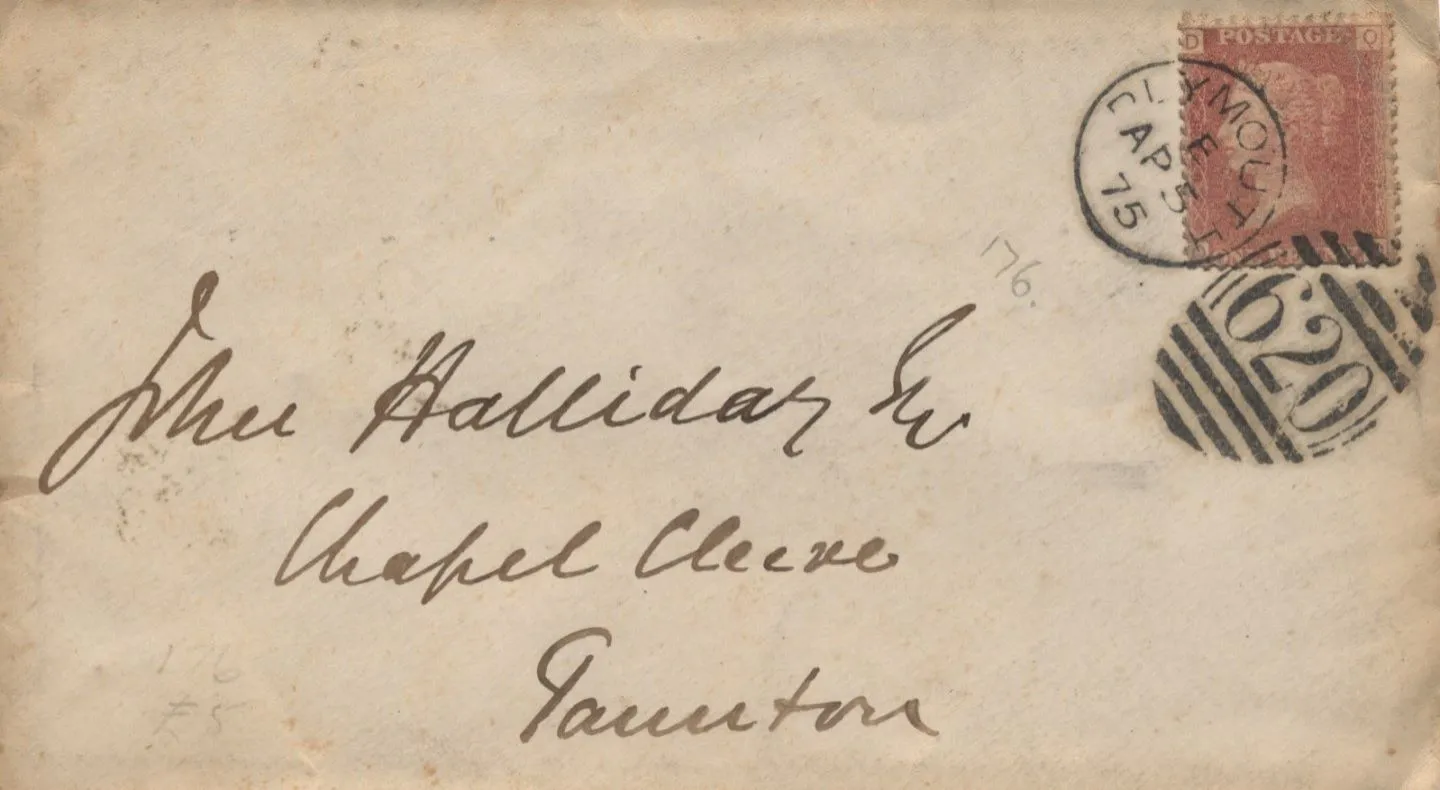 D POSTAGE Q
PLYMOUTH
E
AP 5
75
620
176.
John Halliday Esq
Chapel Cleeve
Taunton
176
£5